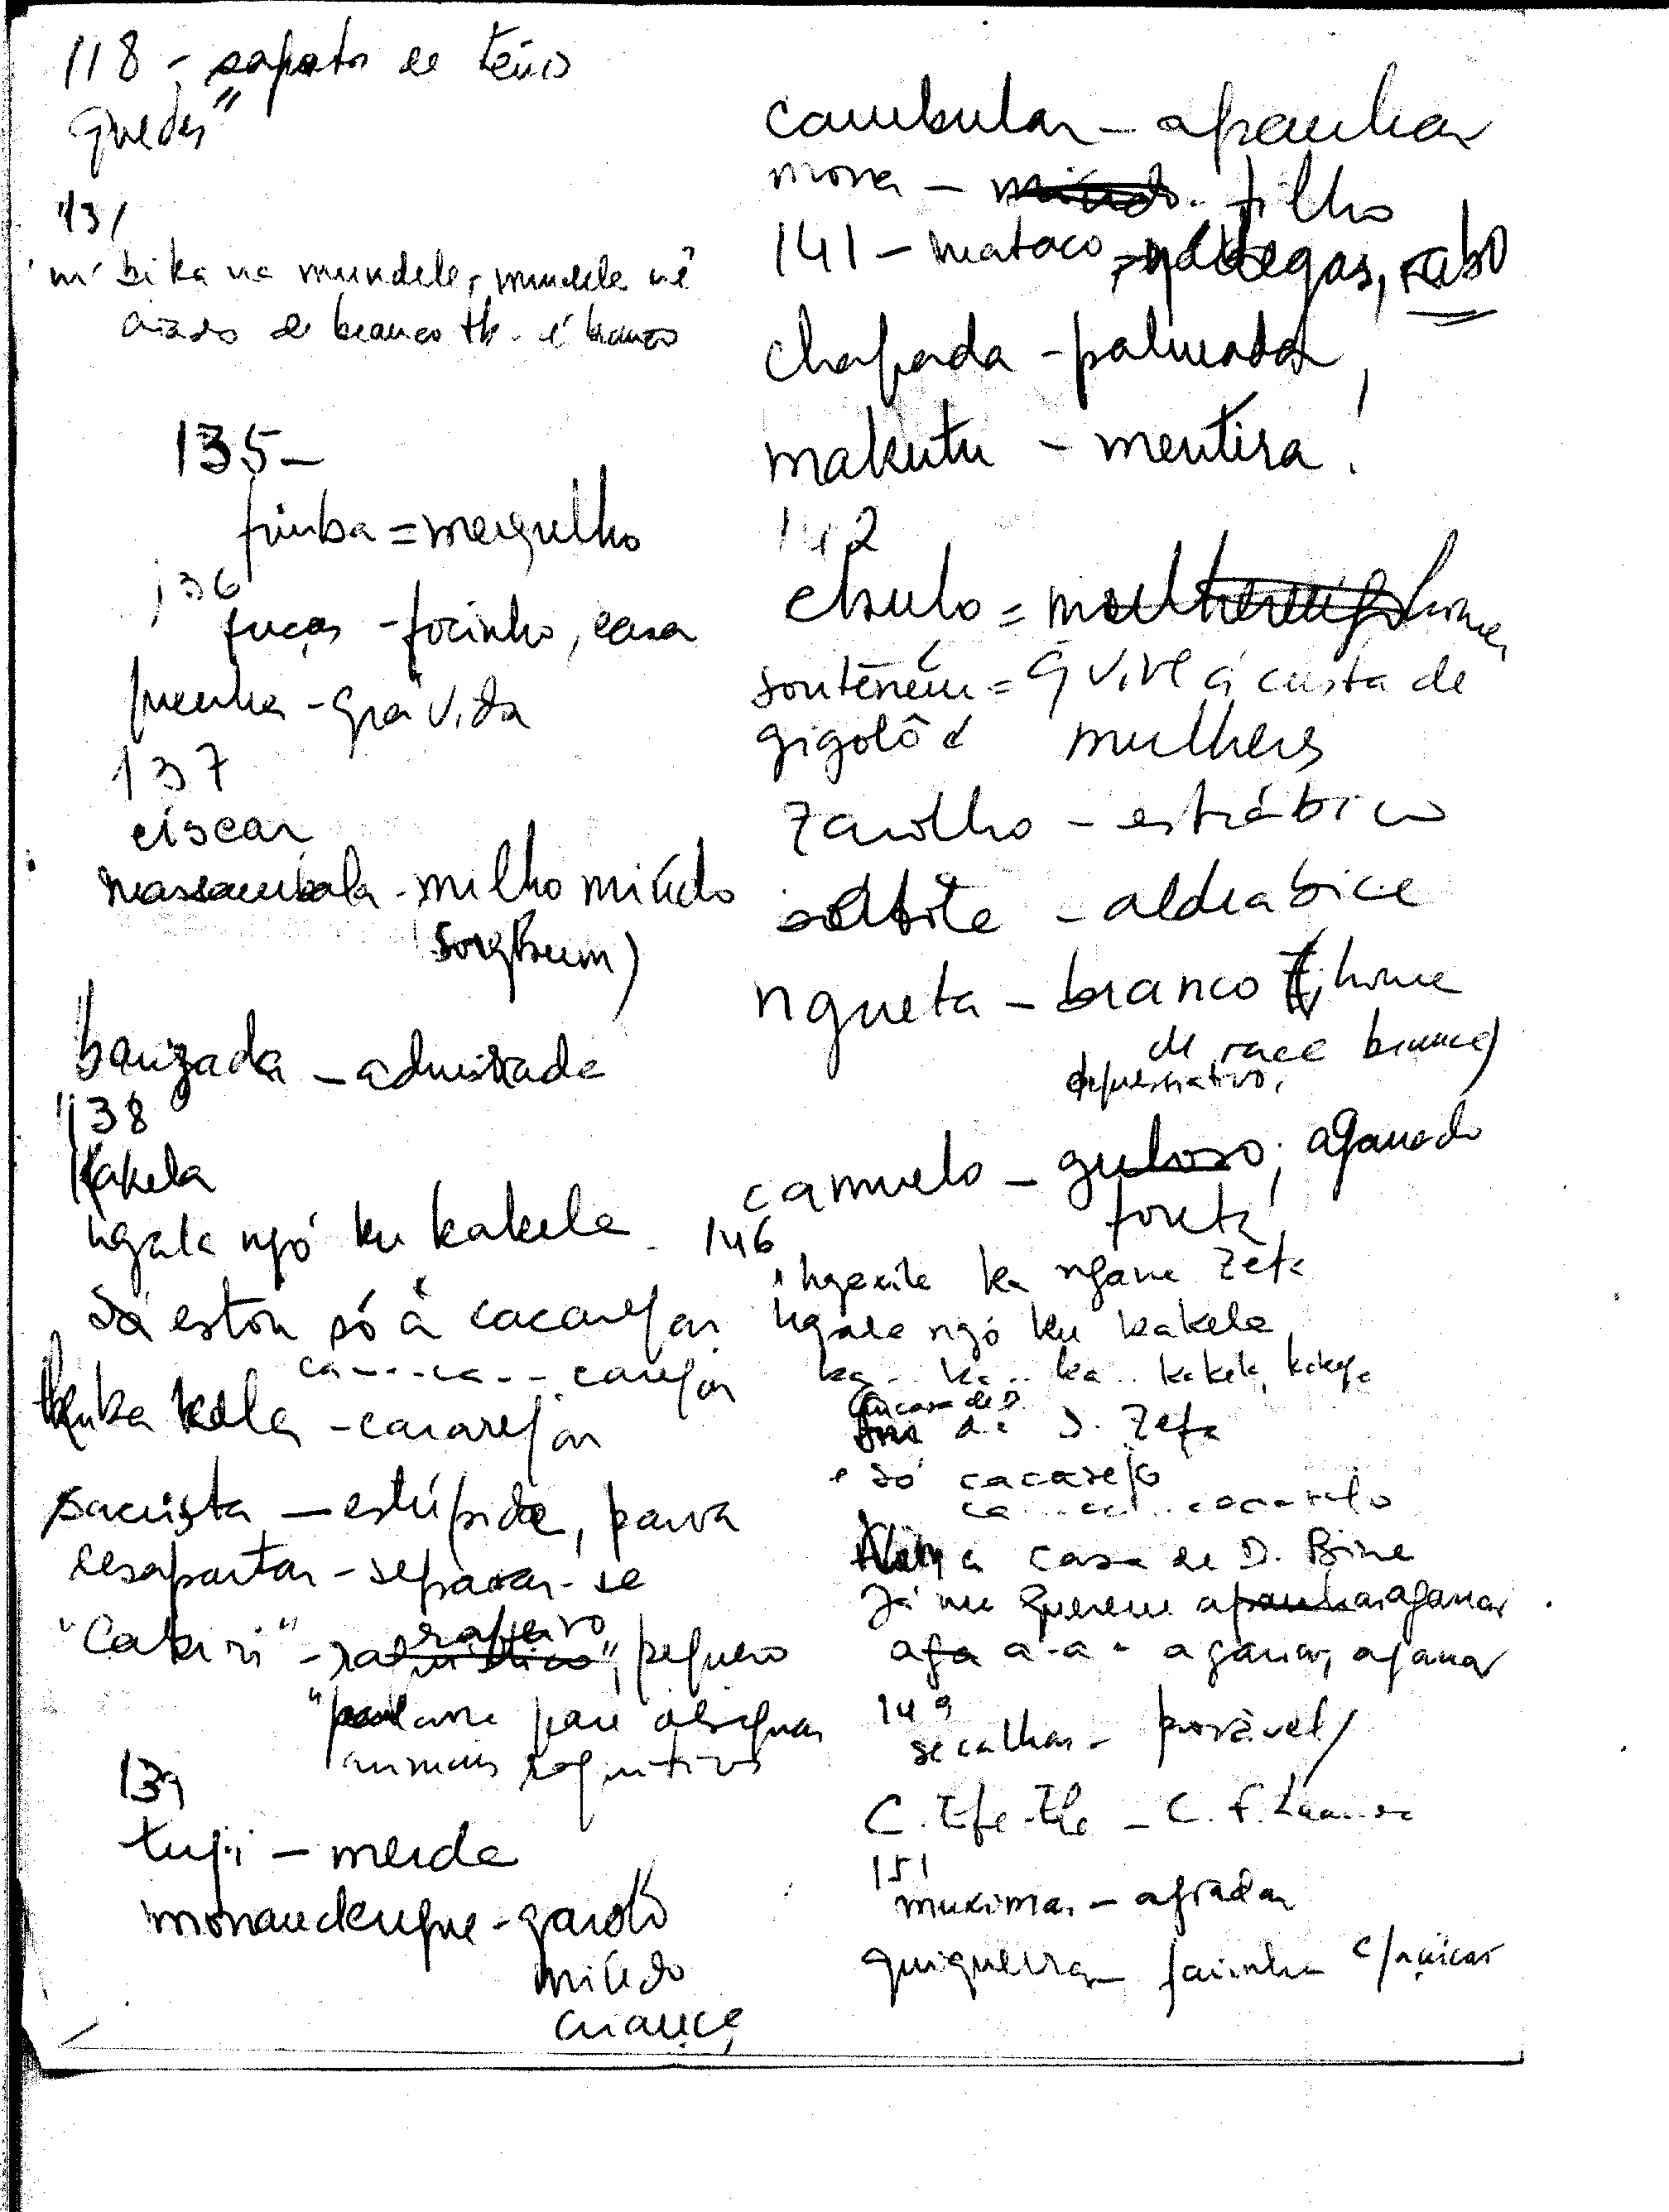 118 - sapatos de ténis
quedes"
131
m'bika na mundele, mundele uê
criado de branco tb. é branco
135 -
fimba = mergulho
136
fuças - focinho, cara
prenha - grávida
137
ciscar
massambala - milho miúdo
sorghum)
banzada - admirada
138
Kakela
ngala ngó ku kakela
Já estou só a cacarejar
ca----ca--- carejar
kukakela - cacarejar
sacrista - estúpida, parva
desapartar - separar-se
"Cabiri" - rafeiro, pequeno
para designar
animais
139
tuji - merda
monandengue - garoto
miúdo
criança
cambular - apanhar
mona - miúdo. filho
141 - mataco - nádegas, rabo
chapada - palmada
makutu - mentira!
142
chulo = homem
q vive à custa de
gigolô mulheres
zarolho - estrábico
aldrabice
ngueta - branco (home
de raça branca)
depreciativo,
camuelo - guloso; aganado
forreta
146
ngexile ka ngana Zefa
ngala ngó ku kakela
ka... ka... ka... kakela, kakela
Em casa de D.
de D. Zefa
só cacarejo
ca... ca... cacarejo
Nem a casa de D. Bina
Já me querem apanhar aganar
aga a-a- aganar, aganar
149
se calhar - provável/
C. Efe-Ele - C. F. Luanda
151
muximar - agradar
quiquerra - farinha c/açúcar